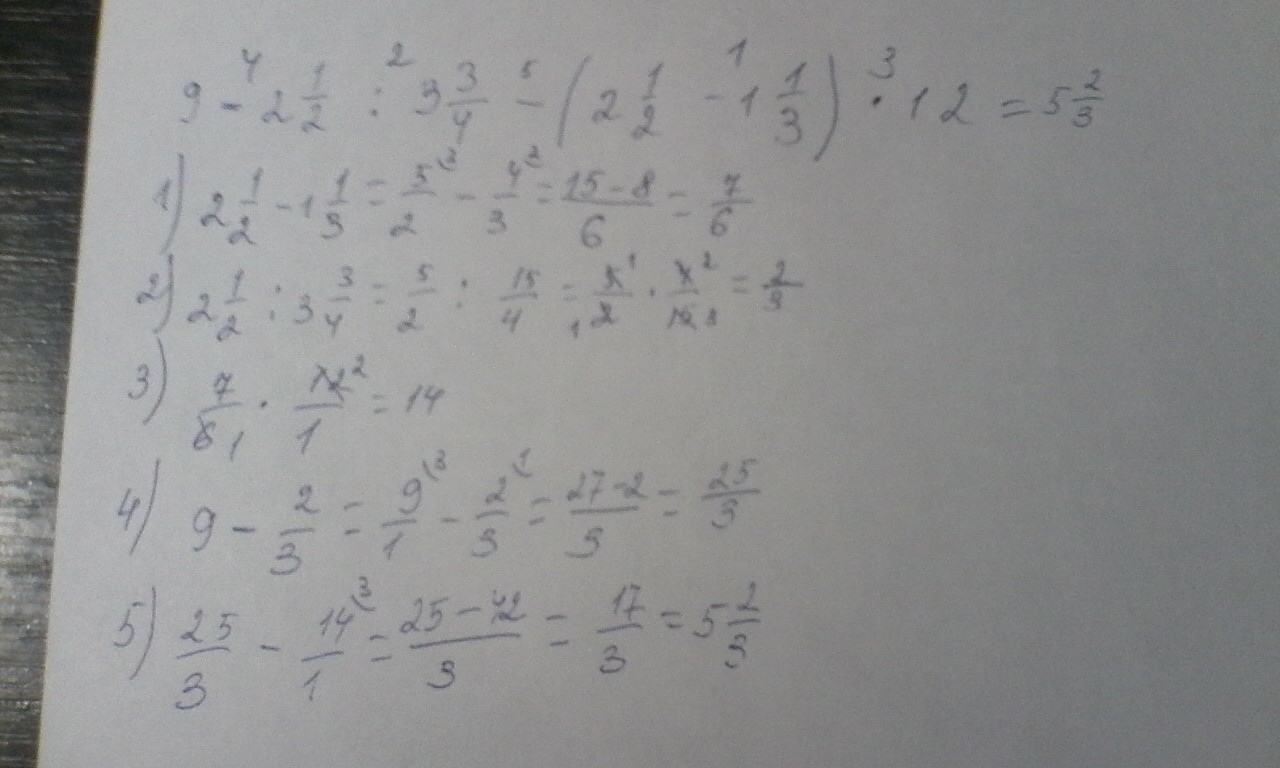 9 - 2 1/2 : 3 3/4 - (2 1/2 - 1 1/3) · 12 = 5 2/3
1) 2 1/2 - 1 1/3 = 5/2 - 4/3 = 15-8/6 = 7/6
2) 2 1/2 : 3 3/4 = 5/2 : 15/4 = 5/2 · 4/15 = 2/3
3) 7/6 · 12/1 = 14
4) 9 - 2/3 = 9/1 - 2/3 = 27-2/3 = 25/3
5) 25/3 - 14/1 = 25-42/3 = 17/3 = 5 2/3